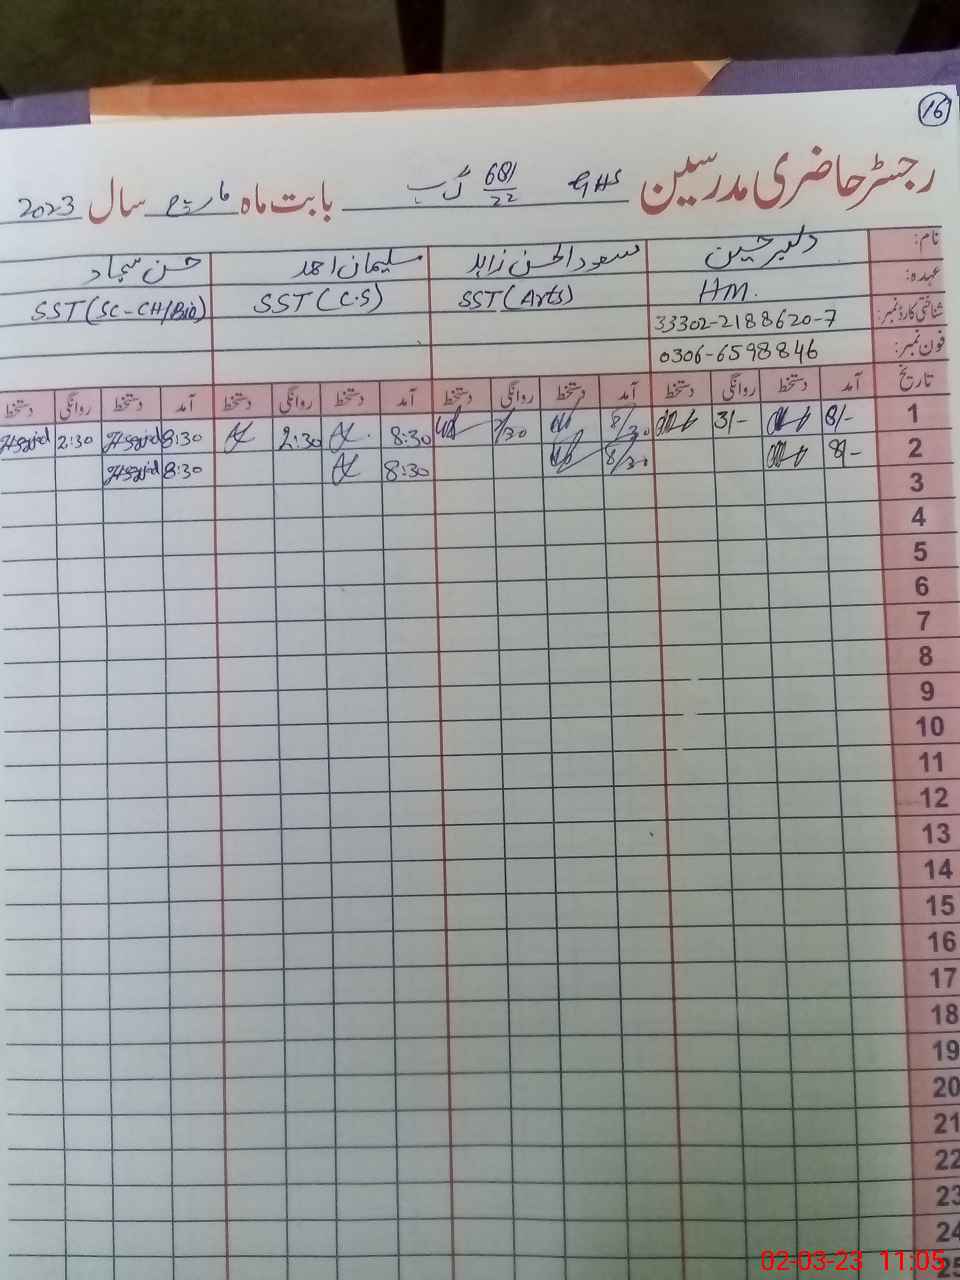 16
رجسٹر حاضری مدرسین GHS 681/22 گ ب بابت ماہ مارچ سال 2023
نام: دلبر حسین سعود الحسن زاہد سلیمان احمد حسن سجاد
عہدہ: HM. SST (Arts) SST (C.S) SST (SC-CH/Bio)
شناختی کارڈ نمبر: 33302-2188620-7
فون نمبر: 0306-6598846
تاریخ آمد دستخط روانگی دستخط آمد دستخط روانگی دستخط آمد دستخط روانگی دستخط آمد دستخط روانگی دستخط
1 8/- 3/- 8/30 2/30 8:30 2:30 8:30 2:30
2 8/- 8/30 8:30 8:30
3
4
5
6
7
8
9
10
11
12
13
14
15
16
17
18
19
20
21
22
23
24
25
02-03-23 11:05